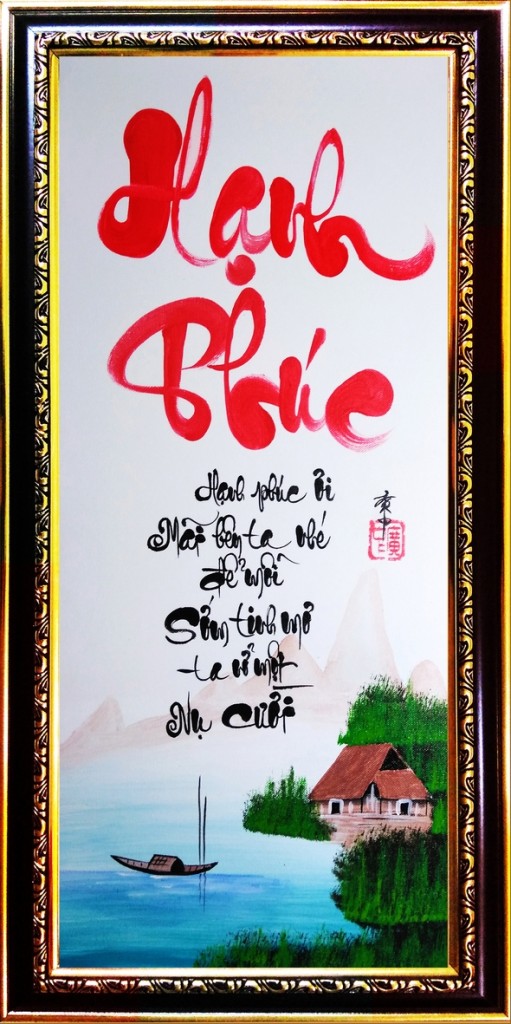 Hạnh
Phúc
Hạnh phúc ơi
Mãi bên ta nhé
để mỗi
Sớm tinh mơ
ta nở một
Nụ cười